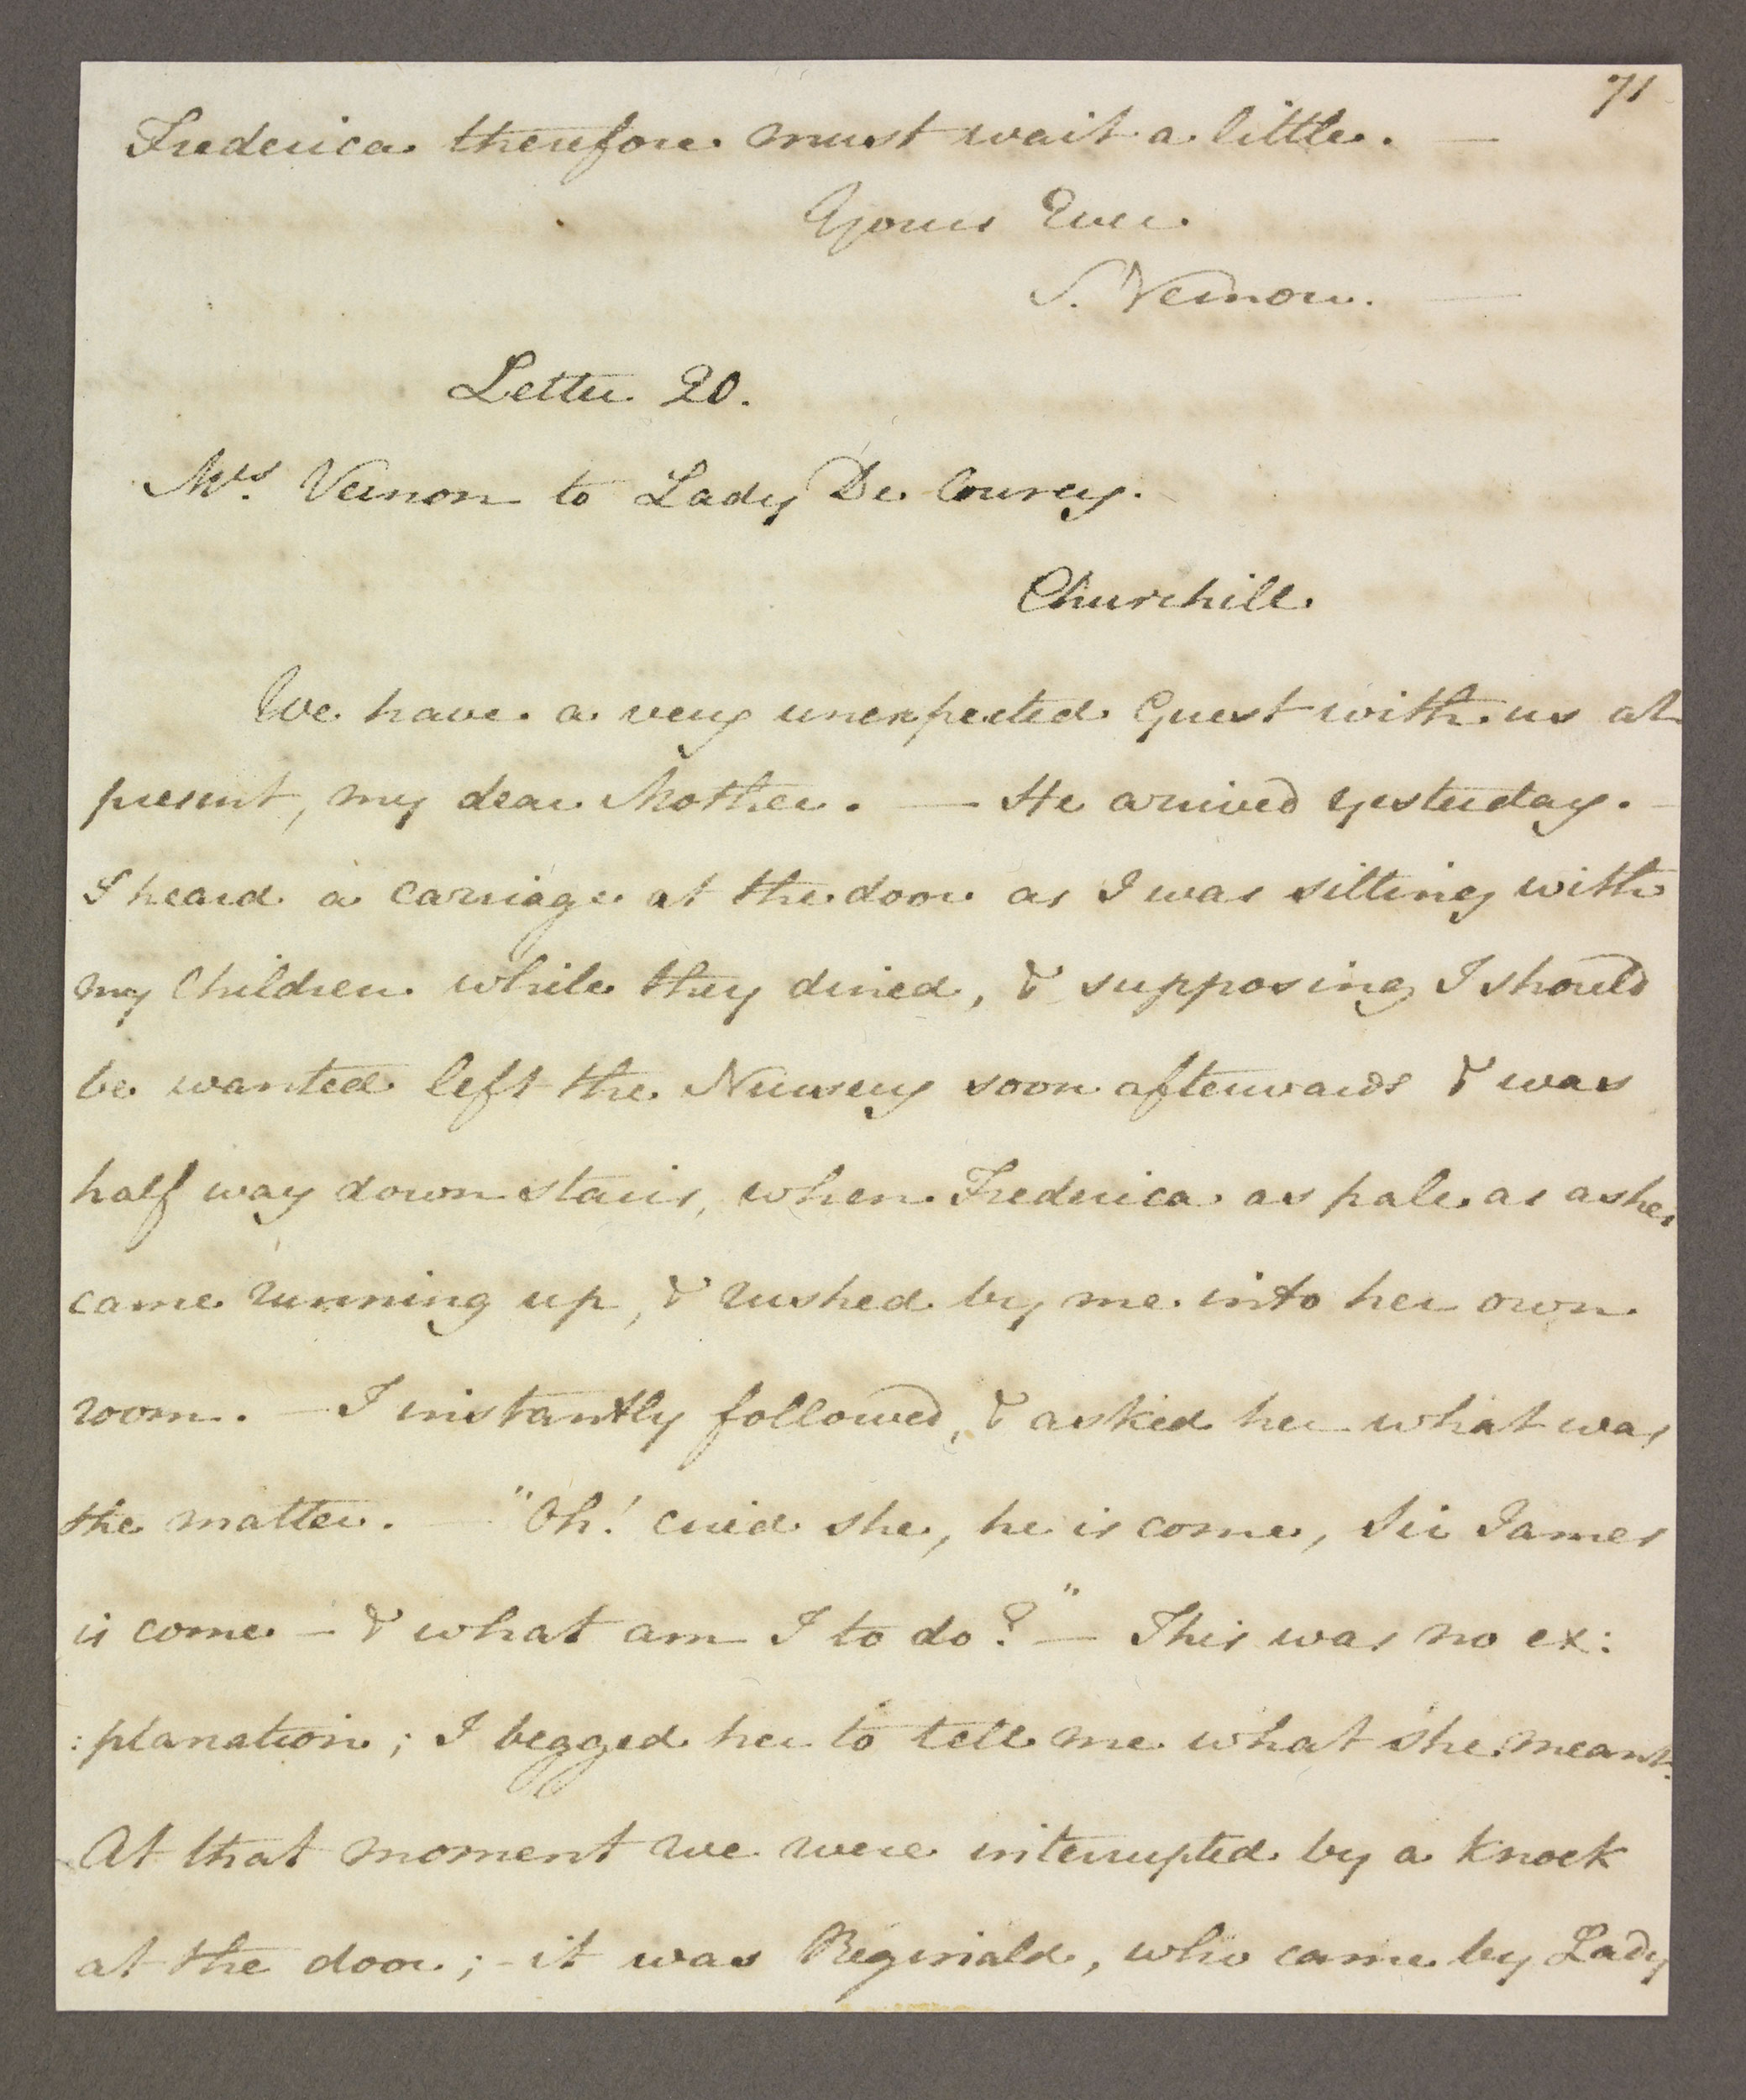 71
Frederica therefore must wait a little. —
Yours Ever
S. Vernon. —
Letter 20.
Mrs. Vernon to Lady De Courcy.
Churchill
We have a very unexpected Guest with us at
present, my dear Mother. — He arrived yesterday. —
I heard a carriage at the door as I was sitting with
my Children while they dined, & supposing I should
be wanted left the Nursery soon afterwards & was
half way down stairs, when Frederica as pale as ashes
came running up, & rushed by me into her own
room. — I instantly followed, & asked her what was
the matter. — "Oh! cried she, he is come, Sir James
is come — & what am I to do?" — This was no ex:
:planation; I begged her to tell me what she meant.
At that moment we were interrupted by a knock
at the door; - it was Reginald, who came by Lady